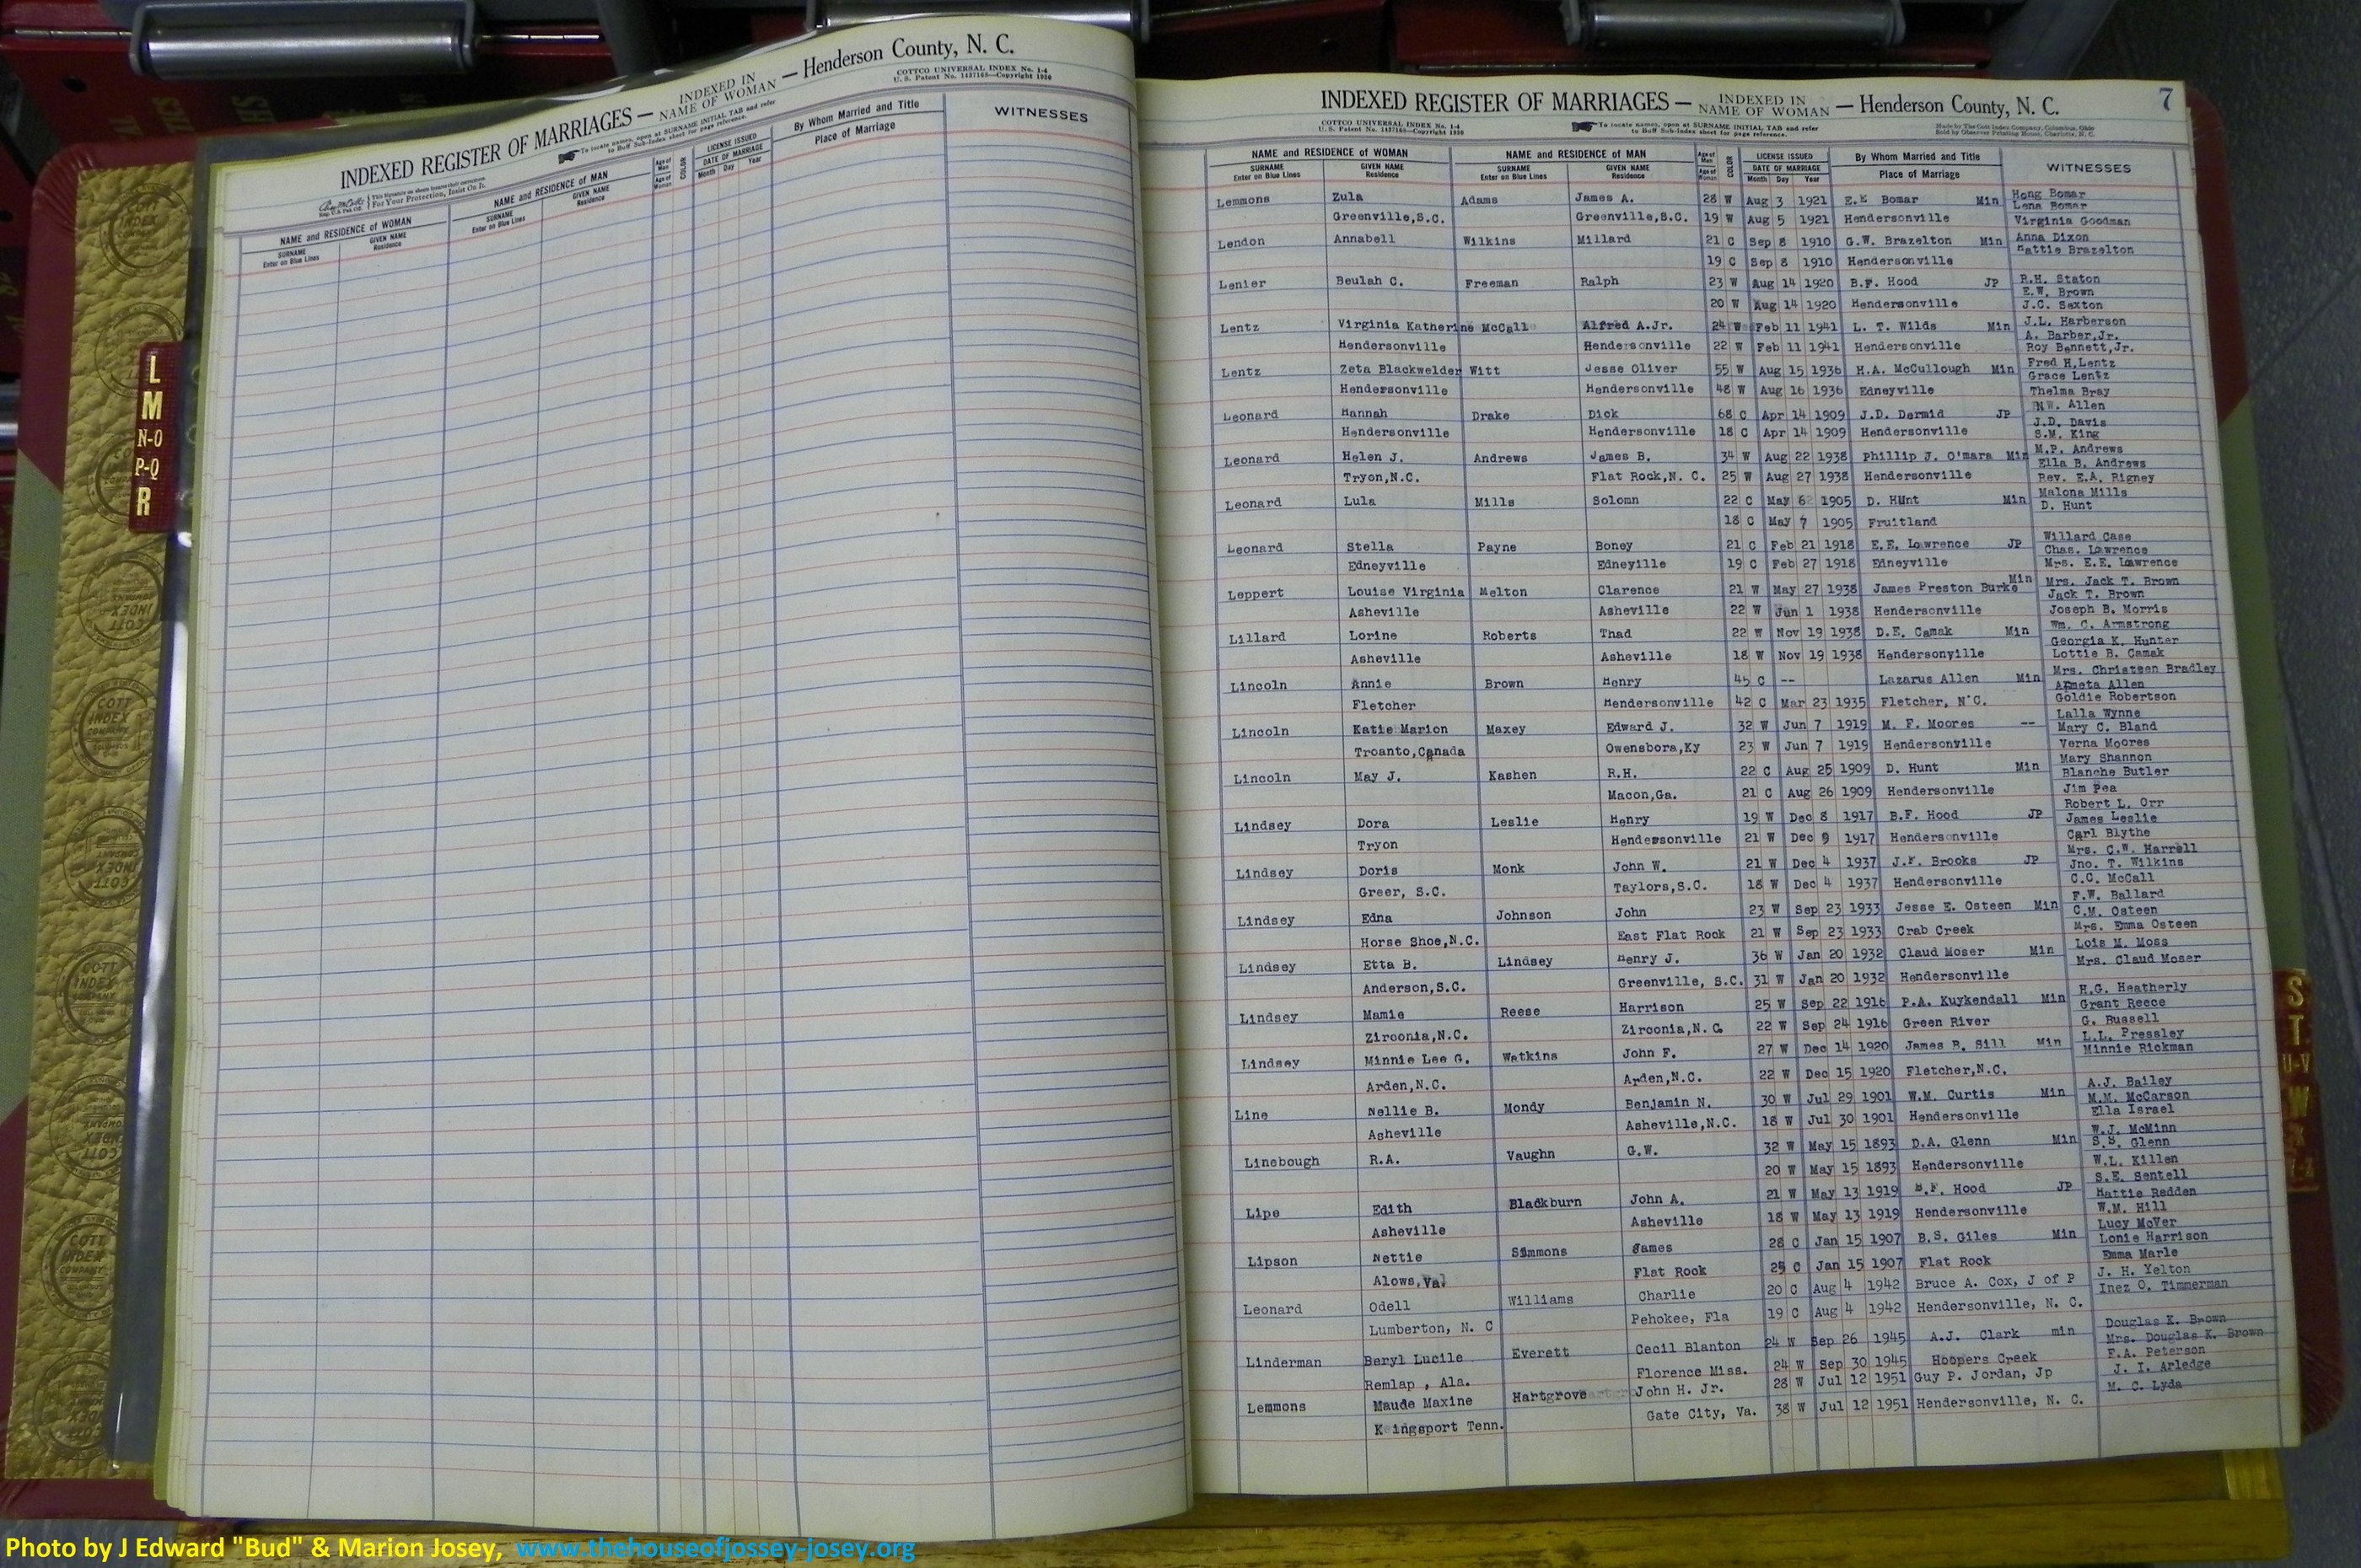 INDEXED REGISTER OF MARRIAGES — INDEXED IN NAME OF WOMAN — Henderson County, N. C.
COTTCO UNIVERSAL INDEX No. 1-4
U. S. Patent No. 1437169—Copyright 1930
To locate names, open at SURNAME INITIAL TAB and refer
to Buff Sub-Index sheet for page reference.
For Your Protection, Insist On It.
NAME and RESIDENCE OF WOMAN NAME and RESIDENCE OF MAN Age of Man Age of Woman COLOR LICENSE ISSUED DATE OF MARRIAGE By Whom Married and Title WITNESSES
SURNAME Enter on Blue Lines GIVEN NAME Residence SURNAME Enter on Blue Lines GIVEN NAME Residence Month Day Year Place of Marriage
L
M
N-O
P-Q
R
INDEXED REGISTER OF MARRIAGES — INDEXED IN NAME OF WOMAN — Henderson County, N. C. 7
COTTCO UNIVERSAL INDEX No. 1-4
U. S. Patent No. 1437169—Copyright 1930
To locate names, open at SURNAME INITIAL TAB and refer
to Buff Sub-Index sheet for page reference.
Made by The Cott Index Company, Columbus, Ohio
Sold by Observer Printing House, Charlotte, N. C.
NAME and RESIDENCE OF WOMAN NAME and RESIDENCE OF MAN Age of Man Age of Woman COLOR LICENSE ISSUED DATE OF MARRIAGE By Whom Married and Title WITNESSES
SURNAME Enter on Blue Lines GIVEN NAME Residence SURNAME Enter on Blue Lines GIVEN NAME Residence Month Day Year Place of Marriage
Lemmons Zula Adams James A. 28 W Aug 3 1921 E.E Bomar Min Hong Bomar
Lena Bomar
Greenville,S.C. Greenville,S.C. 19 W Aug 5 1921 Hendersonville Virginia Goodman
Lendon Annabell Wilkins Millard 21 C Sep 8 1910 G.W. Brazelton Min Anna Dixon
Hattie Brazelton
19 C Sep 8 1910 Hendersonville
Lenier Beulah C. Freeman Ralph 23 W Aug 14 1920 B.F. Hood JP R.H. Staton
E.W. Brown
20 W Aug 14 1920 Hendersonville J.C. Sexton
Lentz Virginia Katherine McCall Alfred A.Jr. 24 W Feb 11 1941 L. T. Wilds Min J.L. Harberson
A. Barber,Jr.
Hendersonville Hendersonville 22 W Feb 11 1941 Hendersonville Roy Bennett,Jr.
Lentz Zeta Blackwelder Witt Jesse Oliver 55 W Aug 15 1936 H.A. McCullough Min Fred H.Lentz
Grace Lentz
Hendersonville Hendersonville 48 W Aug 16 1936 Edneyville Thelma Bray
Leonard Hannah Drake Dick 68 C Apr 14 1909 J.D. Dermid JP W. Allen
J.D. Davis
Hendersonville Hendersonville 18 C Apr 14 1909 Hendersonville S.M. King
Leonard Helen J. Andrews James B. 34 W Aug 22 1938 Phillip J. O'mara Min M.P. Andrews
Ella B. Andrews
Tryon,N.C. Flat Rock,N. C. 25 W Aug 27 1938 Hendersonville Rev. E.A. Rigney
Leonard Lula Mills Solomn 22 C May 6 1905 D. HUnt Min Malona Mills
D. Hunt
18 C May 7 1905 Fruitland
Leonard Stella Payne Boney 21 C Feb 21 1918 E.E. Lawrence JP Willard Case
Chas. Lawrence
Edneyville Edneyille 19 C Feb 27 1918 Edneyville Mrs. E.E. Lawrence
Leppert Louise Virginia Melton Clarence 21 W May 27 1938 James Preston Burke Min Mrs. Jack T. Brown
Jack T. Brown
Asheville Asheville 22 W Jun 1 1938 Hendersonville Joseph B. Morris
Lillard Lorine Roberts Thad 22 W Nov 19 1938 D.E. Camak Min Wm. C. Armstrong
Georgia K. Hunter
Asheville Asheville 18 W Nov 19 1938 Hendersonville Lottie B. Camak
Lincoln Annie Brown Henry 45 C -- Lazarus Allen Min Mrs. Christeen Bradley
Armeta Allen
Fletcher Hendersonville 42 C Mar 23 1935 Fletcher, N.C. Goldie Robertson
Lincoln Katie Marion Maxey Edward J. 32 W Jun 7 1919 M. F. Moores -- Lalla Wynne
Mary C. Bland
Troanto,Canada Owensbora,Ky 23 W Jun 7 1919 Hendersonville Verna Moores
Lincoln May J. Kashen R.H. 22 C Aug 25 1909 D. Hunt Min Mary Shannon
Blanche Butler
Macon,Ga. 21 C Aug 26 1909 Hendersonville Jim Pea
Lindsey Dora Leslie Henry 19 W Dec 8 1917 B.F. Hood JP Robert L. Orr
James Leslie
Tryon Hendersonville 21 W Dec 9 1917 Hendersonville Carl Blythe
Lindsey Doris Monk John W. 21 W Dec 4 1937 J.F. Brooks JP Mrs. C.W. Harrell
Jno. T. Wilkins
Greer, S.C. Taylors,S.C. 18 W Dec 4 1937 Hendersonville C.C. McCall
Lindsey Edna Johnson John 23 W Sep 23 1933 Jesse E. Osteen Min F.W. Ballard
C.M. Osteen
Horse Shoe,N.C. East Flat Rock 21 W Sep 23 1933 Crab Creek Mrs. Emma Osteen
Lindsey Etta B. Lindsey Henry J. 36 W Jan 20 1932 Claud Moser Min Lois M. Moss
Mrs. Claud Moser
Anderson,S.C. Greenville, S.C. 31 W Jan 20 1932 Hendersonville
Lindsey Mamie Reese Harrison 25 W Sep 22 1916 P.A. Kuykendall Min H.G. Heatherly
Grant Reece
Zirconia,N.C. Zirconia,N.C. 22 W Sep 24 1916 Green River G. Bussell
Lindsey Minnie Lee G. Watkins John F. 27 W Dec 14 1920 James B. Sill Min L.L. Pressley
Minnie Rickman
Arden,N.C. Arden,N.C. 22 W Dec 15 1920 Fletcher,N.C.
Line Nellie B. Mondy Benjamin N. 30 W Jul 29 1901 W.M. Curtis Min A.J. Bailey
M.M. McCarson
Asheville Asheville,N.C. 18 W Jul 30 1901 Hendersonville Ella Israel
Linebough R.A. Vaughn G.W. 32 W May 15 1893 D.A. Glenn Min W.J. McMinn
S.S. Glenn
20 W May 15 1893 Hendersonville W.L. Killen
Lipe Edith Blackburn John A. 21 W May 13 1919 B.F. Hood JP S.E. Sentell
Hattie Redden
Asheville Asheville 18 W May 13 1919 Hendersonville W.M. Hill
Lipson Nettie Simmons James 28 C Jan 15 1907 B.S. Giles Min Lucy McVer
Lonie Harrison
Alows,Va. Flat Rock 25 C Jan 15 1907 Flat Rock Emma Marle
Leonard Odell Williams Charlie 20 C Aug 4 1942 Bruce A. Cox, J of P J. H. Yelton
Inez O. Timmerman
Lumberton, N. C Pehokee, Fla 19 C Aug 4 1942 Hendersonville, N. C.
Linderman Beryl Lucile Everett Cecil Blanton 24 W Sep 26 1945 A.J. Clark min Douglas K. Brown
Mrs. Douglas K. Brown
Remlap , Ala. Florence Miss. 24 W Sep 30 1945 Hoopers Creek F.A. Peterson
Lemmons Maude Maxine Hartgrove John H. Jr. 28 W Jul 12 1951 Guy P. Jordan, Jp J. I. Arledge
M. C. Lyda
Kingsport Tenn. Gate City, Va. 38 W Jul 12 1951 Hendersonville, N. C.
S
T
U-V
W
Photo by J Edward "Bud" & Marion Josey, www.thehouseofjossey-josey.org